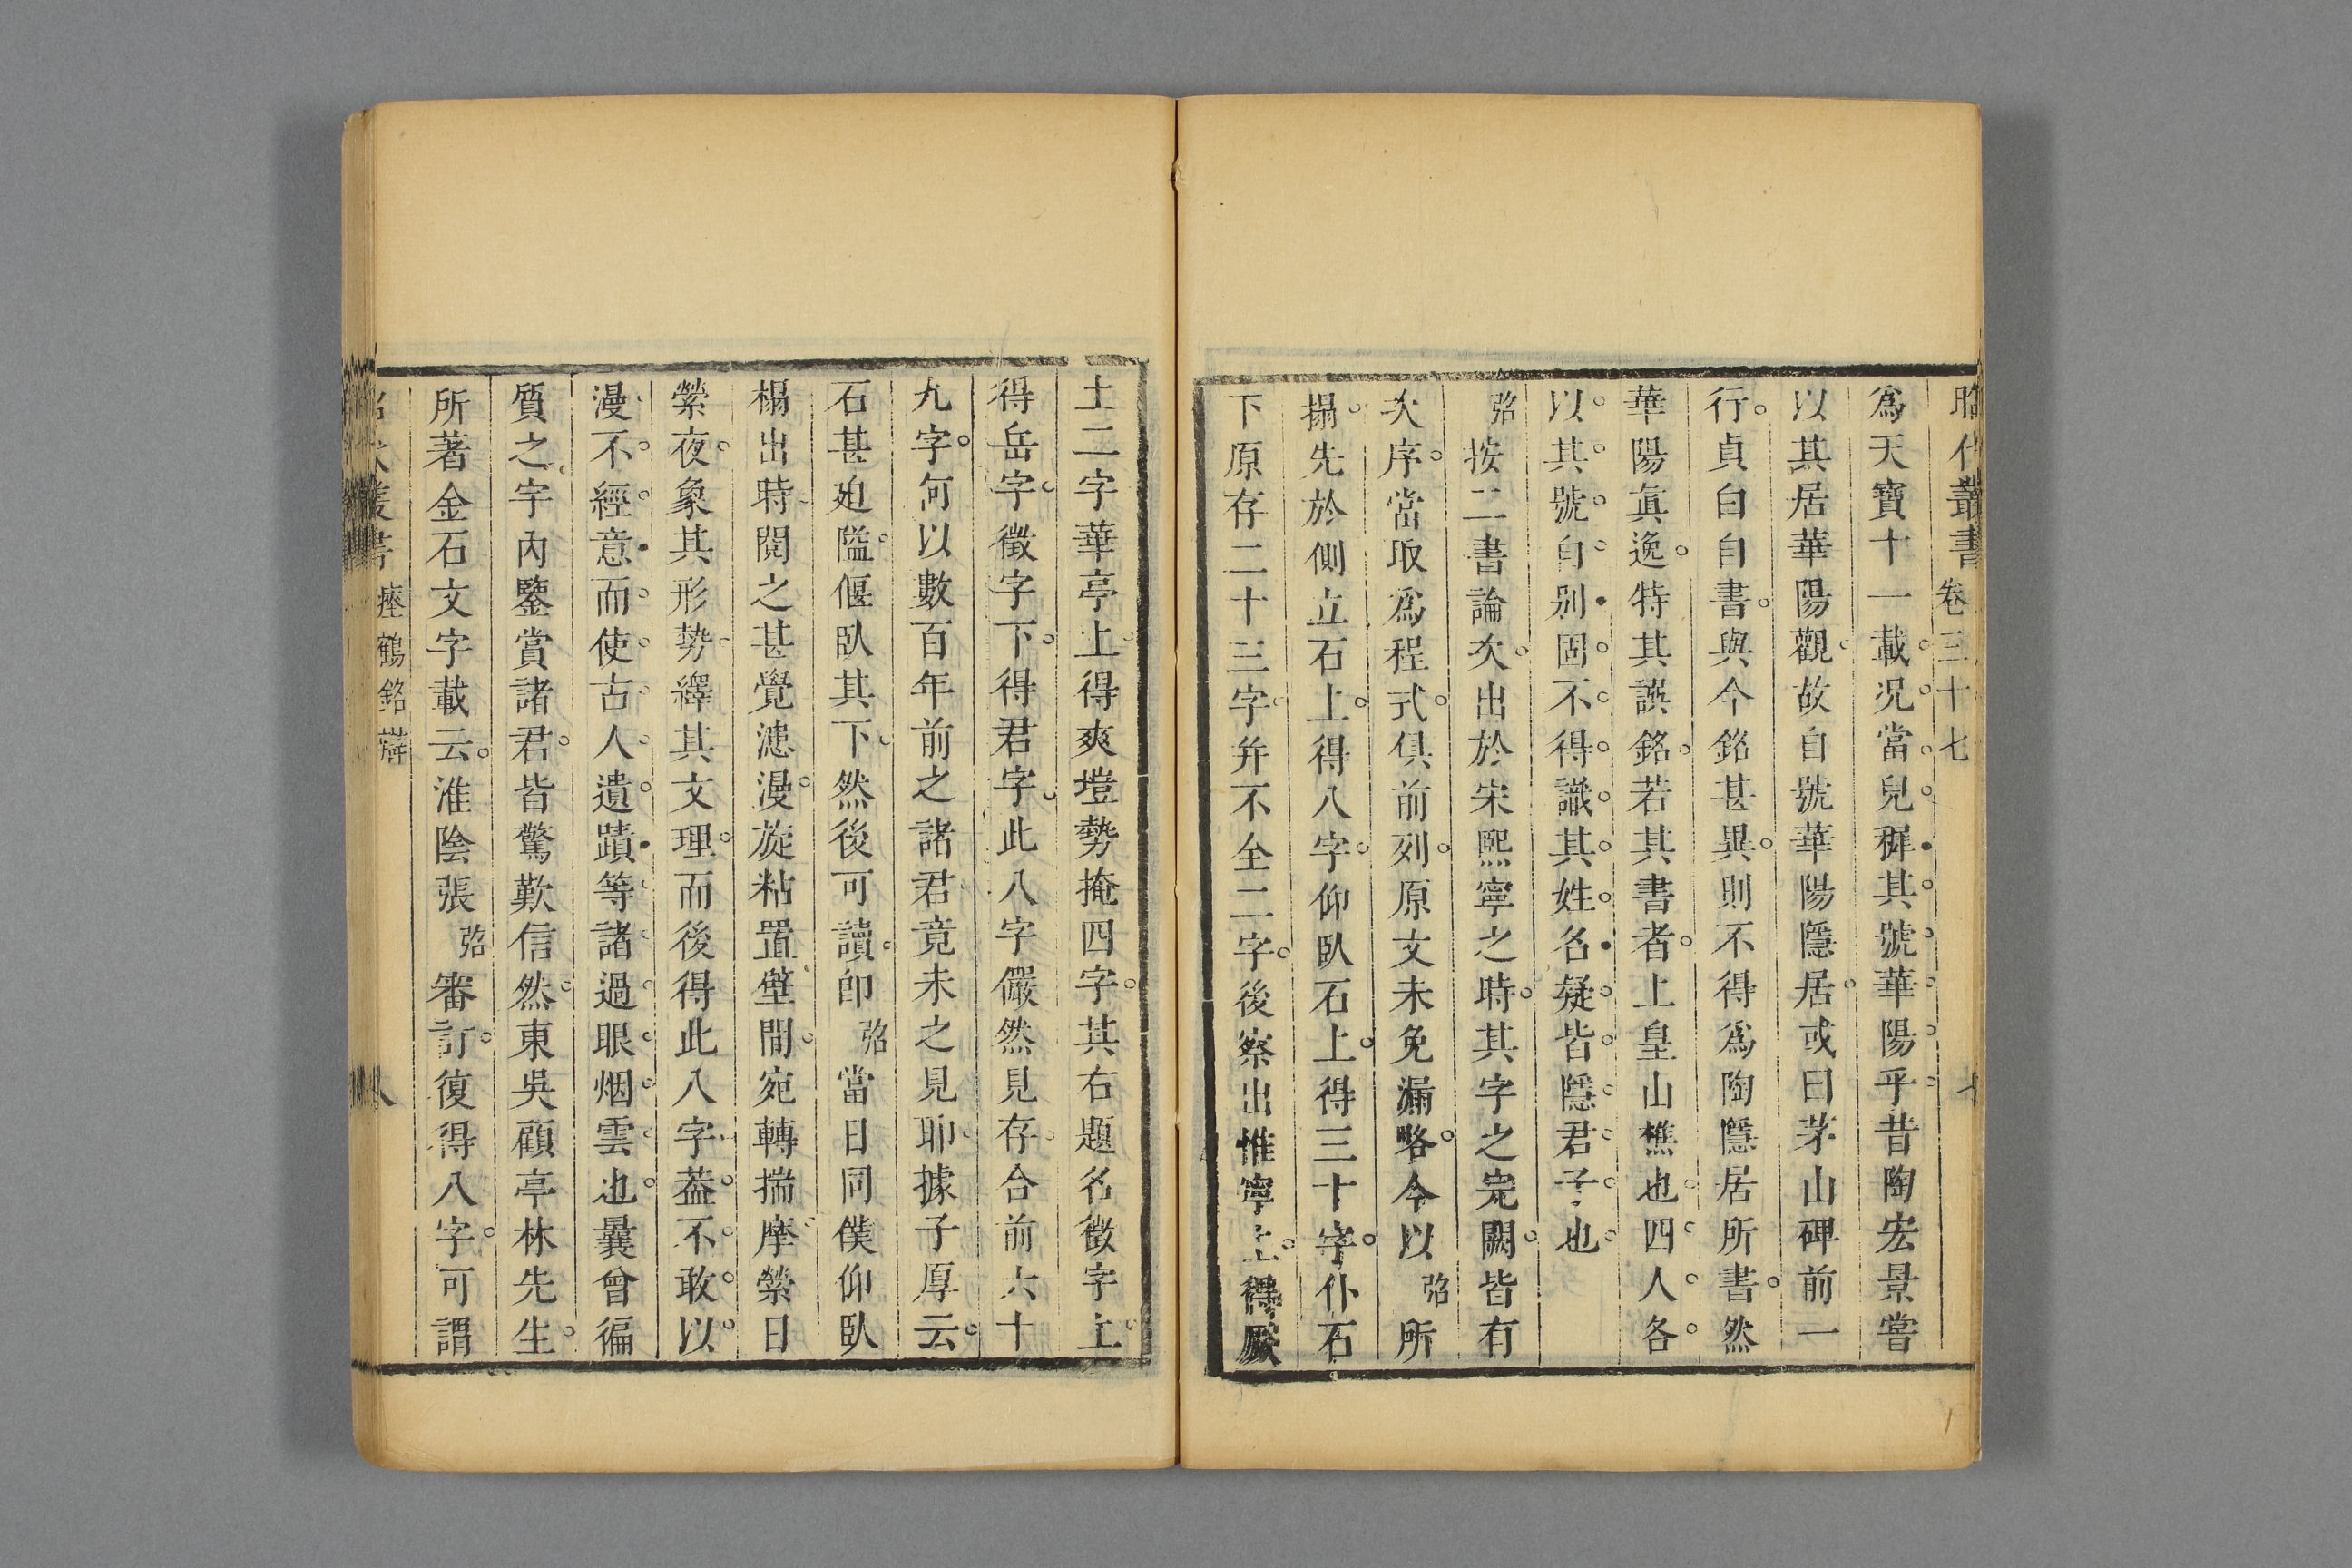 昭代叢書 卷三十七 七
爲天寶十一載况當兒稺其號華陽乎昔陶宏景嘗
以其居華陽觀故自號華陽隱居或曰茅山碑前一
行貞白自書與今銘甚異則不得爲陶隱居所書然
華陽眞逸特其譔銘若其書者上皇山樵也四人各
以其號自别固不得識其姓名疑皆隱君子也
弨按二書論次出於宋熙寧之時其字之完闕皆有
次序當取爲程式俱前列原文未免漏略今以弨所
搨先於側立石上得八字仰臥石上得三十字仆石
下原存二十三字幷不全二字後察出惟寧上得厥
土二字華亭上得爽塏勢掩四字其右題名徵字上
得岳字徵字下得君字此八字儼然見存合前六十
九字何以數百年前之諸君竟未之見耶據子厚云
石甚廹隘偃臥其下然後可讀卽弨當日同僕仰臥
榻出時閱之甚覺漶漫旋粘置壁間宛轉揣摩縈日
縈夜象其形勢繹其文理而後得此八字葢不敢以
漫不經意而使古人遺蹟等諸過眼烟雲也曩曾徧
質之宇內鑒賞諸君皆驚歎信然東吳顧亭林先生
所著金石文字載云淮陰張弨審訂復得八字可謂
瘞鶴銘辯 八